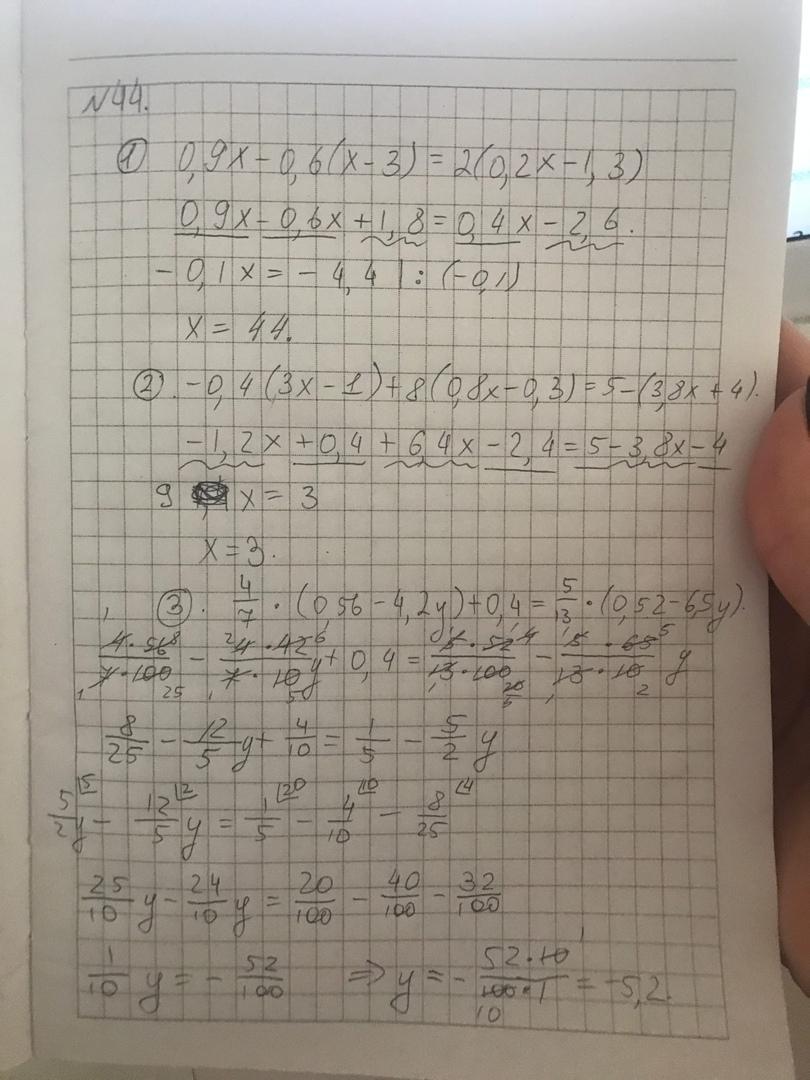 №44.
① 0,9x - 0,6(x - 3) = 2(0,2x - 1,3)
0,9x - 0,6x + 1,8 = 0,4x - 2,6.
- 0,1x = - 4,4 | : (-0,1)
x = 44.
②. -0,4(3x - 1) + 8(0,8x - 0,3) = 5 - (3,8x + 4).
-1,2x + 0,4 + 6,4x - 2,4 = 5 - 3,8x - 4
9 x = 3
x = 3.
③. 4/7 · (0,56 - 4,2y) + 0,4 = 5/13 · (0,52 - 6,5y).
4·56/7·100 - 4·42/7·10 y + 0,4 = 5·52/13·100 - 5·65/13·10 y
8/25 - 12/5 y + 4/10 = 1/5 - 5/2 y
5/2 y - 12/5 y = 1/5 - 4/10 - 8/25
25/10 y - 24/10 y = 20/100 - 40/100 - 32/100
1/10 y = - 52/100 ⇒ y = - 52·10/100·1 = -5,2.